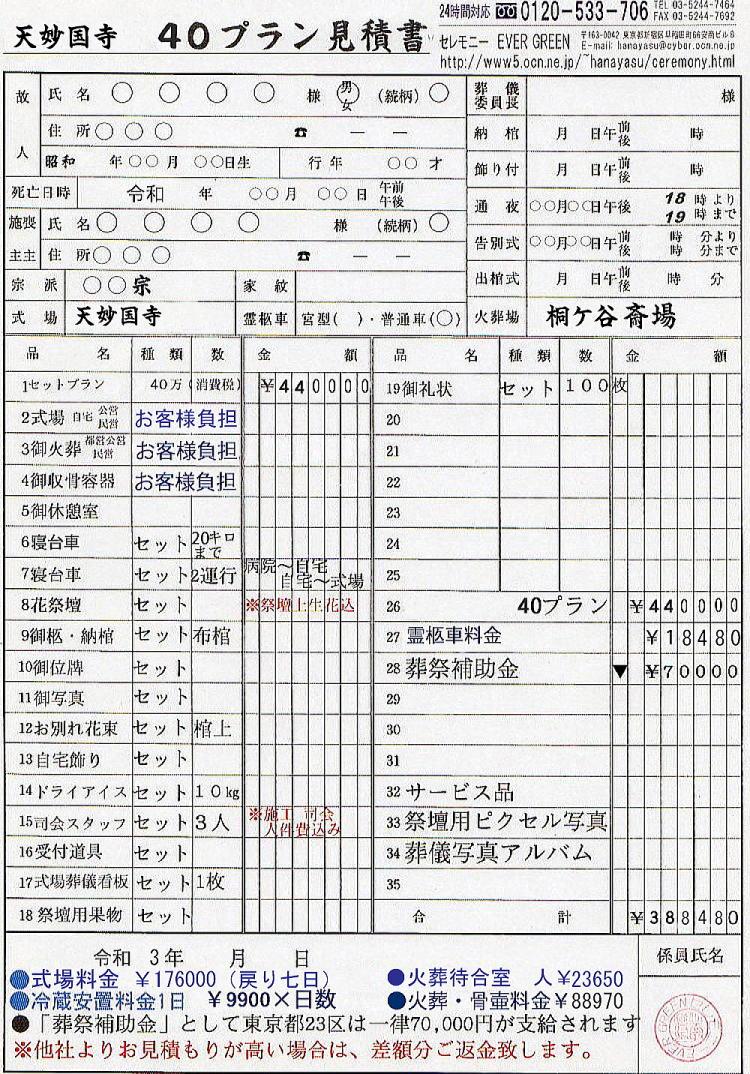 天妙国寺 40プラン見積書
24時間対応 0120-533-706 TEL 03-5244-7464
FAX 03-5244-7692
セレモニー EVER GREEN 〒163-0042 東京都新宿区早稲田町66安商ビル6
E-mail: hanayasu@cyber.ocn.ne.jp
http://www5.ocn.ne.jp/~hanayasu/ceremony.html
故人 氏名 ○ ○ ○ ○ 様 男女 (続柄) ○
住所 ○ ○ ○ ☎ ― ―
昭和 年○○月 ○○日生 行年 ○○才
死亡日時 令和 年 ○○月 ○○日 午前午後
施主 喪主 氏名 ○ ○ ○ ○ 様 (続柄) ○
住所 ○ ○ ○ ☎ ― ―
宗派 ○○宗 家紋
式場 天妙国寺 霊柩車 宮型( )・普通車(○)
葬儀委員長 様
納棺 月 日午前後 時
飾り付 月 日午前後 時
通夜 ○○月○○日午後 18時より 19時まで
告別式 ○○月○○日午前後 時 分より 時 分まで
出棺式 月 日午前後 時 分
火葬場 桐ケ谷斎場
品名 種類 数 金額
1セットプラン 40万(消費税) ¥440000
2式場 自宅 公営 民営 お客様負担
3御火葬 都営公営 民営 お客様負担
4御収骨容器 お客様負担
5御休憩室
6寝台車 セット 20キロまで
7寝台車 セット 2運行 病院～自宅 自宅～式場
8花祭壇 セット ※祭壇上生花込
9御柩・納棺 セット 布棺
10御位牌 セット
11御写真 セット
12お別れ花束 セット 棺上
13自宅飾り セット
14ドライアイス セット 10kg
15司会スタッフ セット 3人 ※施工 司会 人件費込み
16受付道具 セット
17式場葬儀看板 セット 1枚
18祭壇用果物 セット
品名 種類 数 金額
19御礼状 セット 100枚
20
21
22
23
24
25
26 40プラン ¥440000
27 霊柩車料金 ¥18480
28 葬祭補助金 ▼ ¥70000
29
30
31
32 サービス品
33 祭壇用ピクセル写真
34 葬儀写真アルバム
35
合計 ¥388480
令和 3年 月 日
係員氏名
●式場料金 ¥176000（戻り七日） ●火葬待合室 人¥23650
●冷蔵安置料金1日 ¥9900×日数 ●火葬・骨壺料金¥88970
●「葬祭補助金」として東京都23区は一律70,000円が支給されます
※他社よりお見積もりが高い場合は、差額分ご返金致します。
EVER GREEN